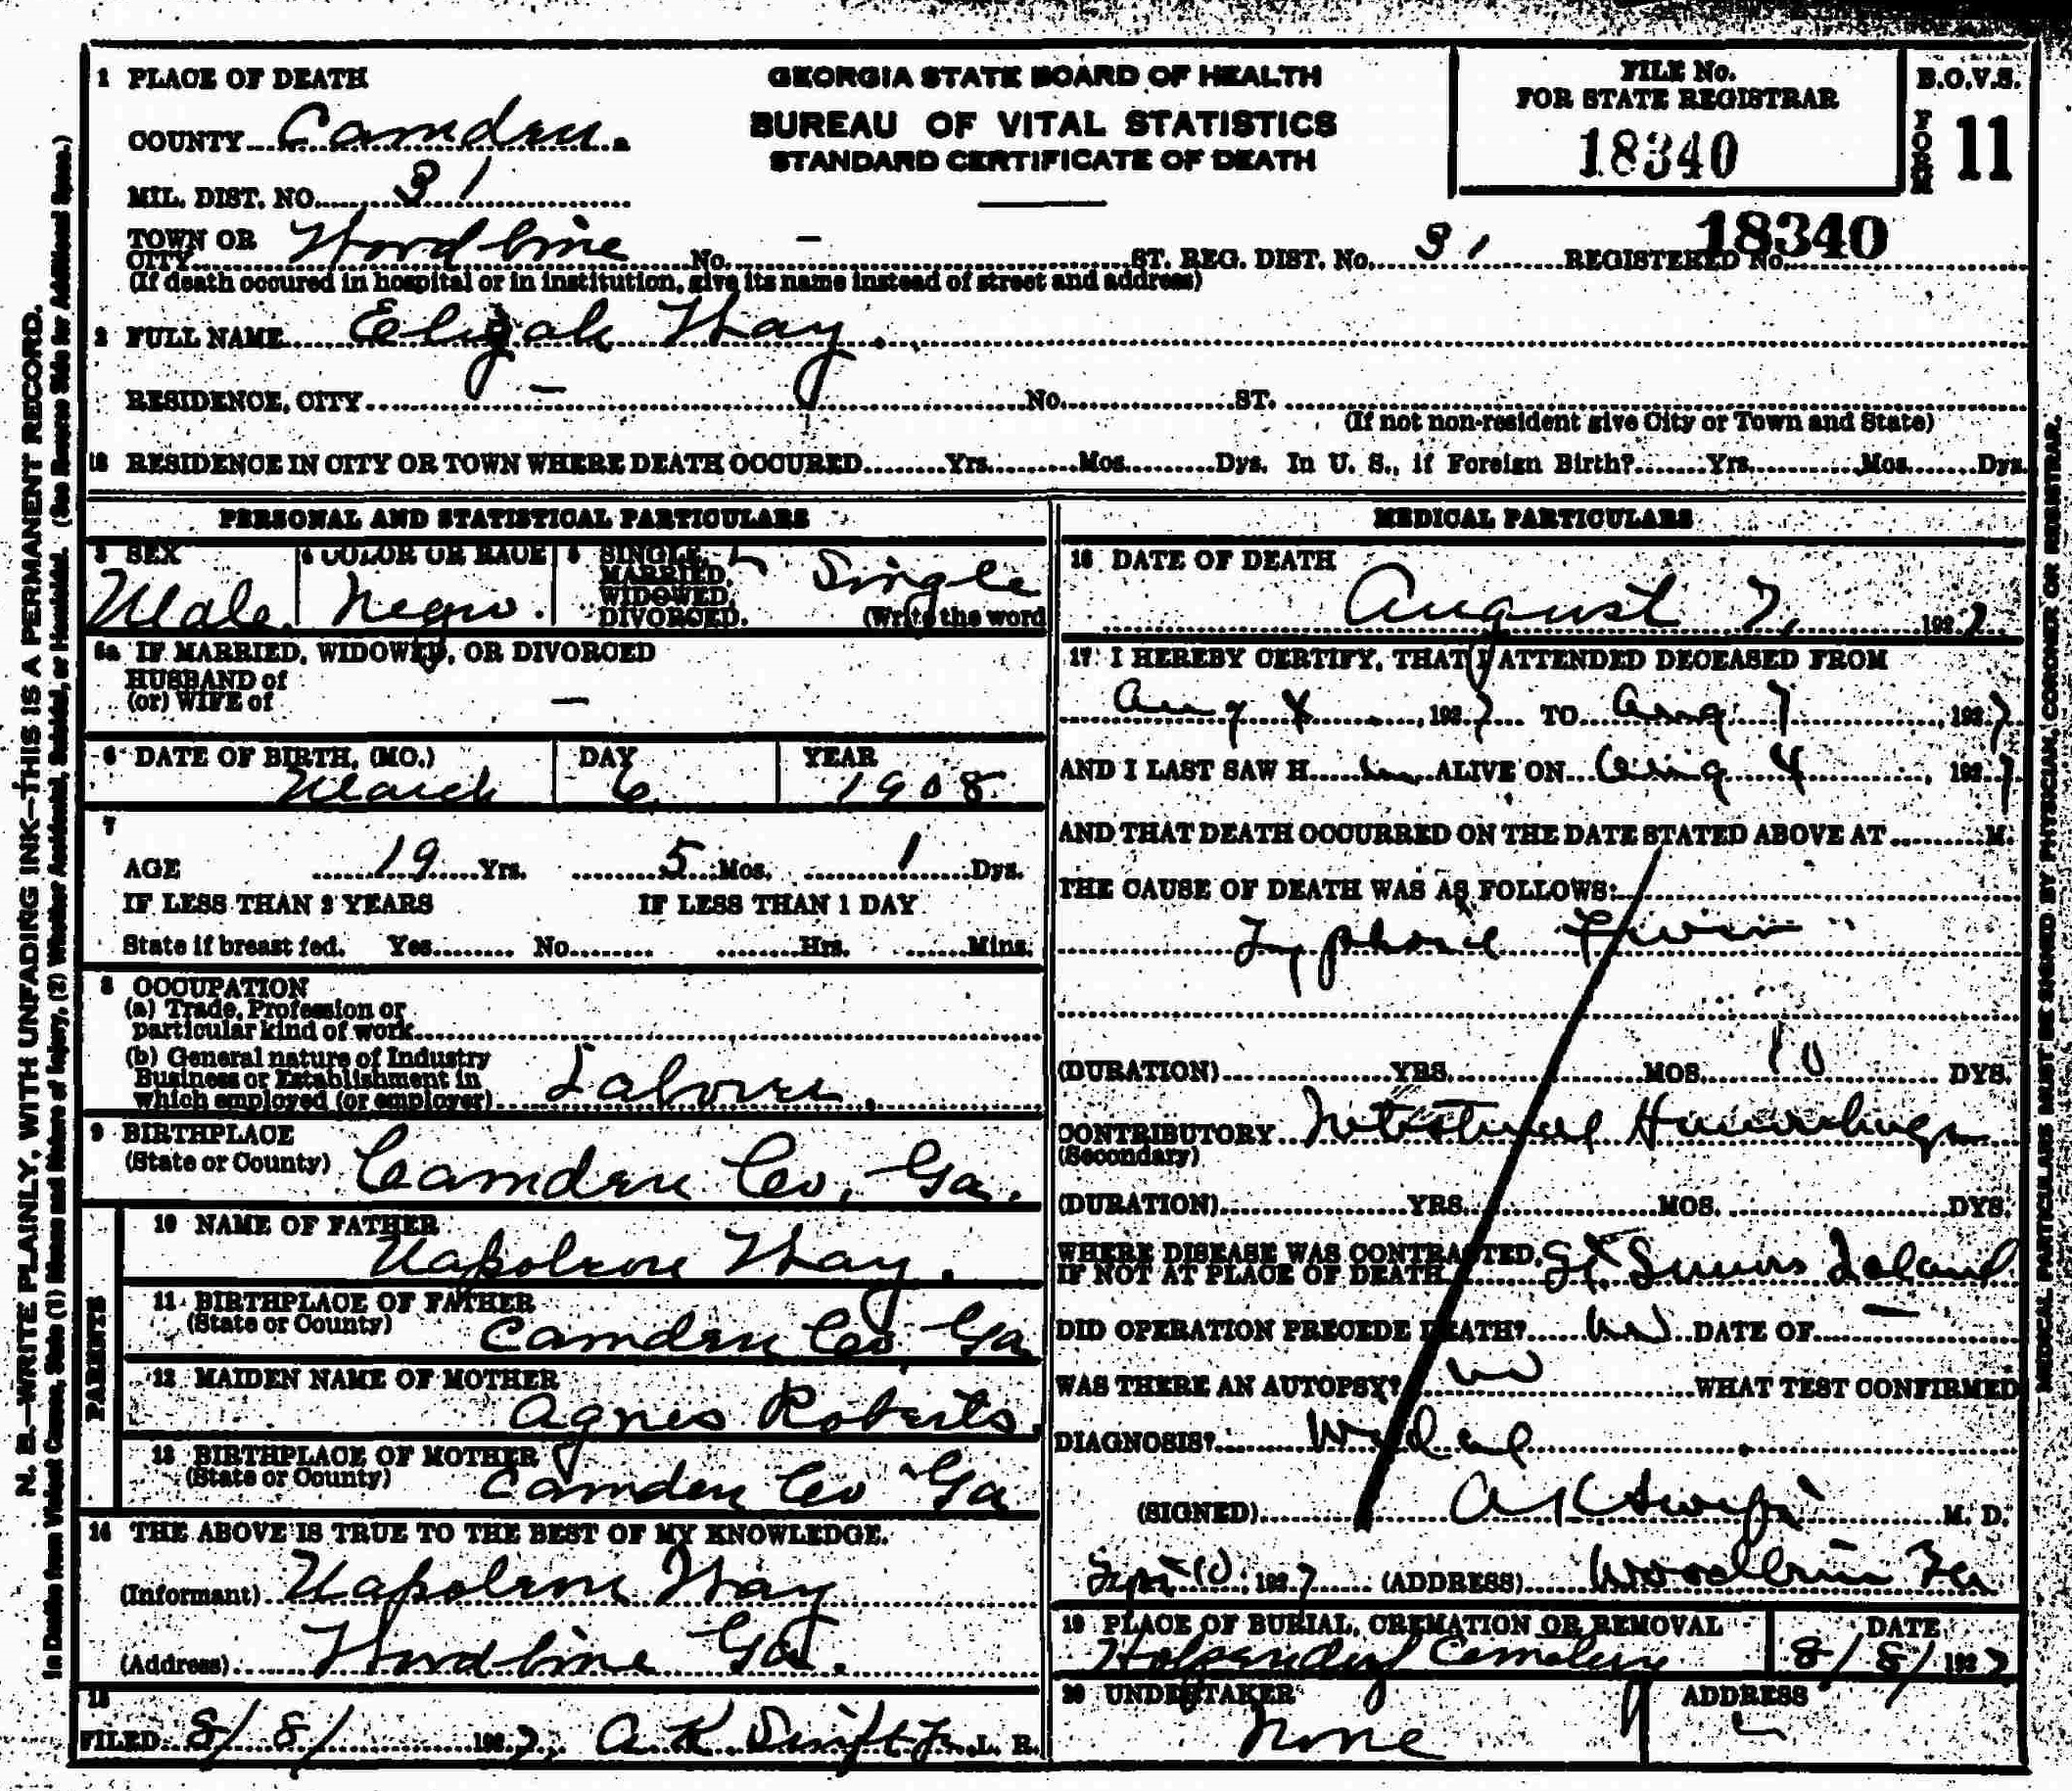 1 PLACE OF DEATH
GEORGIA STATE BOARD OF HEALTH
BUREAU OF VITAL STATISTICS
STANDARD CERTIFICATE OF DEATH
FILE No.
FOR STATE REGISTRAR
18340
B.O.V.S.
FORM 11
COUNTY Camden.
MIL. DIST. NO. 31
TOWN OR
CITY Woodbine No. - ST. REG. DIST. No. 31 REGISTERED No. 18340
(If death occured in hospital or in institution, give its name instead of street and address)
2 FULL NAME Elijah Way.
RESIDENCE, CITY - No. ST.
(If not non-resident give City or Town and State)
18 RESIDENCE IN CITY OR TOWN WHERE DEATH OCCURED Yrs. Mos. Dys. In U. S., if Foreign Birth? Yrs. Mos. Dys.
PERSONAL AND STATISTICAL PARTICULARS
3 SEX 4 COLOR OR RACE 5 SINGLE,
MARRIED,
WIDOWED,
DIVORCED.
Male. Negro. Single
(Write the word
5a IF MARRIED, WIDOWED, OR DIVORCED
HUSBAND of
(or) WIFE of -
6 DATE OF BIRTH, (MO.) DAY YEAR
March 6 1908
7
AGE 19 Yrs. 5 Mos. 1 Dys.
IF LESS THAN 2 YEARS IF LESS THAN 1 DAY
State if breast fed. Yes No Hrs. Mins.
8 OCCUPATION
(a) Trade, Profession or
particular kind of work
(b) General nature of Industry
Business or Establishment in
which employed (or employer) Laborer.
9 BIRTHPLACE
(State or County) Camden Co, Ga.
PARENTS
10 NAME OF FATHER
Napoleon Way.
11 BIRTHPLACE OF FATHER
(State or County) Camden Co, Ga
12 MAIDEN NAME OF MOTHER
Agnes Roberts.
13 BIRTHPLACE OF MOTHER
(State or County) Camden Co Ga
14 THE ABOVE IS TRUE TO THE BEST OF MY KNOWLEDGE.
(Informant) Napoleon Way
(Address) Woodbine Ga.
15
FILED 8/8/ 1927. A K Swift Jr. L. R.
MEDICAL PARTICULARS
16 DATE OF DEATH
August 7, 1927
17 I HEREBY CERTIFY, THAT I ATTENDED DECEASED FROM
Aug 4, 1927 TO Aug 7, 1927
AND I LAST SAW H im ALIVE ON Aug 4, 1927
AND THAT DEATH OCCURRED ON THE DATE STATED ABOVE AT M.
THE CAUSE OF DEATH WAS AS FOLLOWS:
Typhoid Fever
(DURATION) YRS. MOS. 10 DYS.
CONTRIBUTORY Intestinal Hemorrhage
(Secondary)
(DURATION) YRS. MOS. DYS.
WHERE DISEASE WAS CONTRACTED,
IF NOT AT PLACE OF DEATH St Simons Island
DID OPERATION PRECEDE DEATH? no DATE OF -
WAS THERE AN AUTOPSY? no WHAT TEST CONFIRMED
DIAGNOSIS? Widal
(SIGNED) A K Swift M. D.
Sept 10, 1927 (ADDRESS) Woodbine Ga
19 PLACE OF BURIAL, CREMATION OR REMOVAL DATE
Cemetery 8/8/1927
20 UNDERTAKER ADDRESS
None
N. B.—WRITE PLAINLY, WITH UNFADING INK—THIS IS A PERMANENT RECORD.
In Deaths from Violent Causes, State (1) Means and Nature of Injury, (2) Whether Accidental, Suicidal, or Homicidal. (See Reverse Side for Additional Space.)
MEDICAL PARTICULARS MUST BE SIGNED BY PHYSICIAN, CORONER OR REGISTRAR.